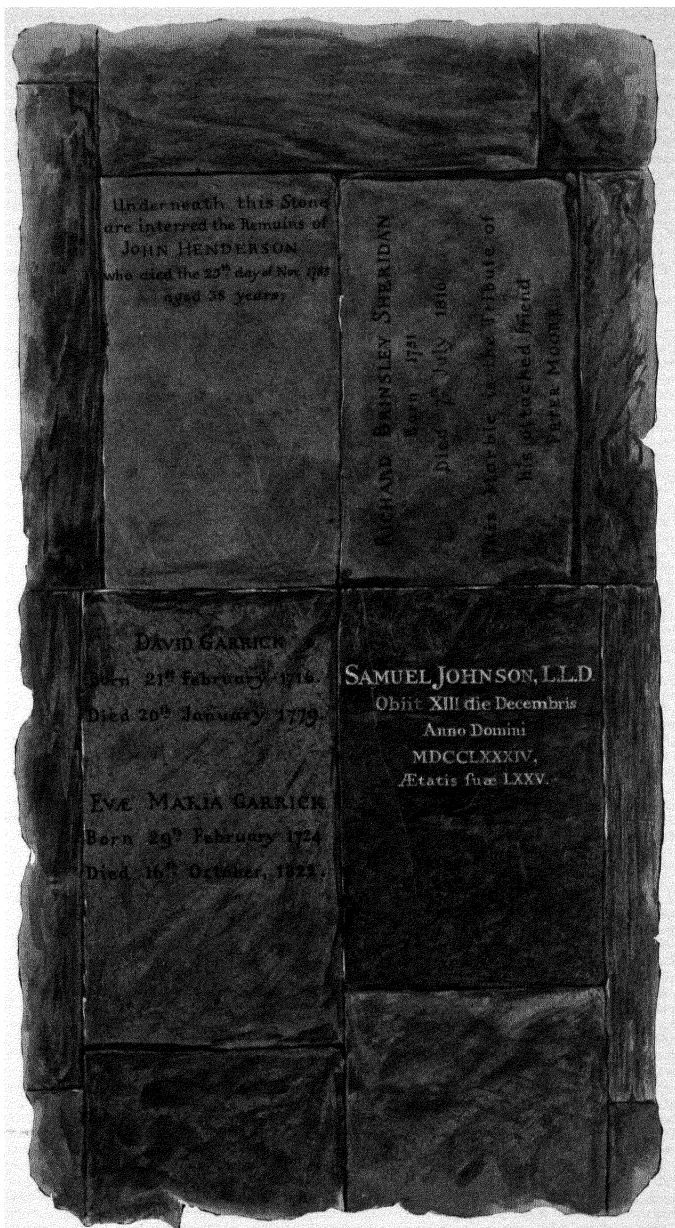 Underneath this Stone
are interred the Remains of
JOHN HENDERSON
who died the 25th day of Nov. 1785
aged 38 years.
RICHARD BRINSLEY SHERIDAN
Born 1751
Died 7th July 1816
This Marble is the Tribute of
his attached friend
PETER MOORE.
DAVID GARRICK
Born 21st February 1716.
Died 20th January 1779.
EVÆ MARIA GARRICK
Born 29th February 1724
Died 16th October, 1822.
SAMUEL JOHNSON, L.L.D.
Obiit XIII die Decembris
Anno Domini
MDCCLXXXIV,
Ætatis ſuæ LXXV.